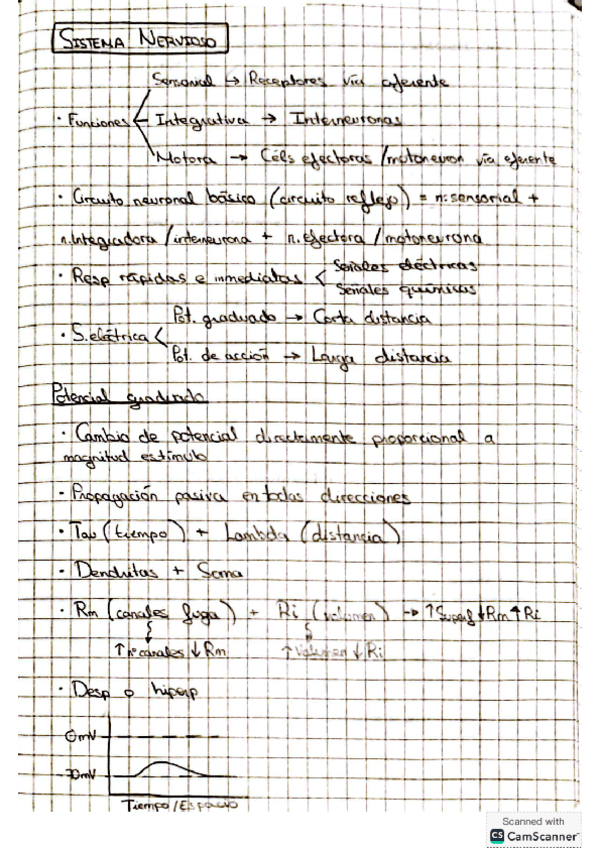 SISTEMA NERVIOSO
Sensorial → Receptores vía aferente
· Funciones Integrativa → Interneuronas
Motora → Céls efectoras /motoneuron vía eferente
· Circuito neuronal básico (circuito reflejo) = n.sensorial +
n.integradora /interneurona + n.efectora /motoneurona
· Resp rápidas e inmediatas < Señales eléctricas
Señales químicas
Pot. graduado → Corta distancia
· S.eléctrica <
Pot. de acción → Larga distancia
Potencial graduado
· Cambio de potencial directamente proporcional a
magnitud estímulo
· Propagación pasiva en todas direcciones
· Tau (tiempo) + Lambda (distancia)
· Dendritas + Soma
· Rm (canales fuga) + Ri (volumen) → ↑Superf ↓Rm ↑Ri
↑nº canales ↓Rm ↑Volumen ↓Ri
· Desp o hiperp
0mV
-70mV
Tiempo/Espacio
Scanned with
CS CamScanner